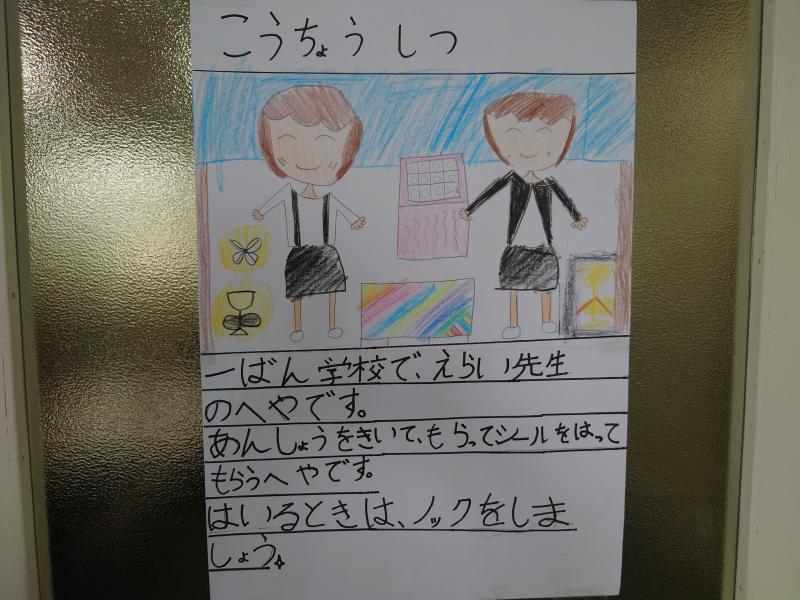 こうちょうしつ
一ばん学校で、えらい先生
のへやです。
あんしょうをきいて、もらってシールをはって
もらうへやです。
はいるときは、ノックをしま
しょう。